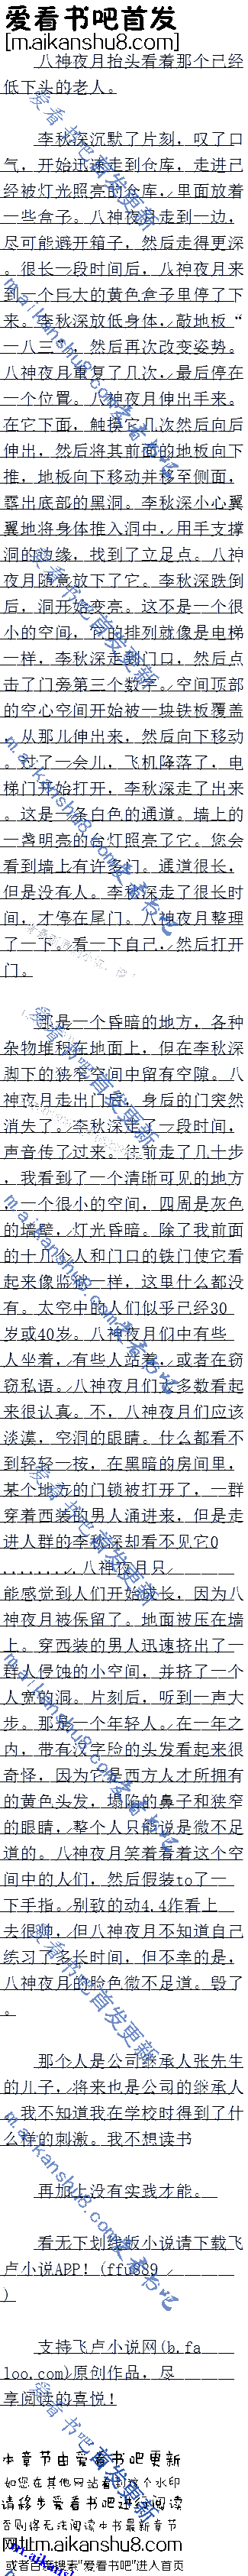 爱看书吧首发
[m.aikanshu8.com]
八神夜月抬头看着那个已经
低下头的老人。
李秋深沉默了片刻，叹了口
气，开始迅速走到仓库，走进已
经被灯光照亮的仓库，里面放着
一些盒子。八神夜月走到一边，
尽可能避开箱子，然后走得更深
。很长一段时间后，八神夜月来
到一个巨大的黄色盒子里停了下
来。李秋深放低身体，敲地板“
一八三”，然后再次改变姿势。
八神夜月重复了几次，最后停在
一个位置。八神夜月伸出手来。
在它下面，触摸它几次然后向后
伸出，然后将其前面的地板向下
推，地板向下移动并移至侧面，
露出底部的黑洞。李秋深小心翼
翼地将身体推入洞中，用手支撑
洞的边缘，找到了立足点。八神
夜月随意放下了它。李秋深跌倒
后，洞开始变亮。这不是一个很
小的空间，它的排列就像是电梯
一样，李秋深走到门口，然后点
击了门旁第三个数字。空间顶部
的空心空间开始被一块铁板覆盖
，从那儿伸出来，然后向下移动
。过了一会儿，飞机降落了，电
梯门开始打开，李秋深走了出来
。这是一条白色的通道。墙上的
一盏明亮的台灯照亮了它。您会
看到墙上有许多门。通道很长，
但是没有人。李秋深走了很长时
间，才停在尾门。八神夜月整理
了一下。看一下自己，然后打开
门。
那是一个昏暗的地方，各种
杂物堆积在地面上，但在李秋深
脚下的狭窄空间中留有空隙。八
神夜月走出门后，身后的门突然
消失了。李秋深走了一段时间，
声音传了过来。往前走了几十步
，我看到了一个清晰可见的地方
，一个很小的空间，四周是灰色
的墙壁，灯光昏暗。除了我前面
的十几个人和门口的铁门使它看
起来像监狱一样，这里什么都没
有。太空中的人们似乎已经30
岁或40岁。八神夜月们中有些
人坐着，有些人站着，或者在窃
窃私语。八神夜月们大多数看起
来很认真。不，八神夜月们应该
淡漠，空洞的眼睛。什么都看不
到轻轻一按，在黑暗的房间里，
某个地方的门锁被打开了，一群
穿着西装的男人涌进来，但是走
进人群的李秋深却看不见它0
........八神夜月只
能感觉到人们开始成长，因为八
神夜月被保留了。地面被压在墙
上。穿西装的男人迅速挤出了一
群人侵蚀的小空间，并挤了一个
人宽的洞。片刻后，听到一声大
步。那是一个年轻人。在一年之
内，带有汉字脸的头发看起来很
奇怪，因为它是西方人才所拥有
的黄色头发，塌陷的鼻子和狭窄
的眼睛，整个人只能说是微不足
道的。八神夜月笑着看着这个空
间中的人们，然后假装to了一
下手指。别致的动4.4作看上
去很帅，但八神夜月不知道自己
练习了多长时间，但不幸的是，
八神夜月的脸色微不足道。毁了
。
那个人是公司继承人张先生
的儿子，将来也是公司的继承人
。我不知道我在学校时得到了什
么样的刺激。我不想读书
再加上没有实践才能。
看无下划线版小说请下载飞
卢小说APP！(ffu889
)
支持飞卢小说网(b.fa
loo.com)原创作品，尽
享阅读的喜悦！
本章节由爱看书吧更新
如您在其他网站看到这个水印
请移步爱看书吧进行阅读
否则将无法阅读本书最新章节
网址m.aikanshu8.com
或者百度搜索“爱看书吧”进入首页